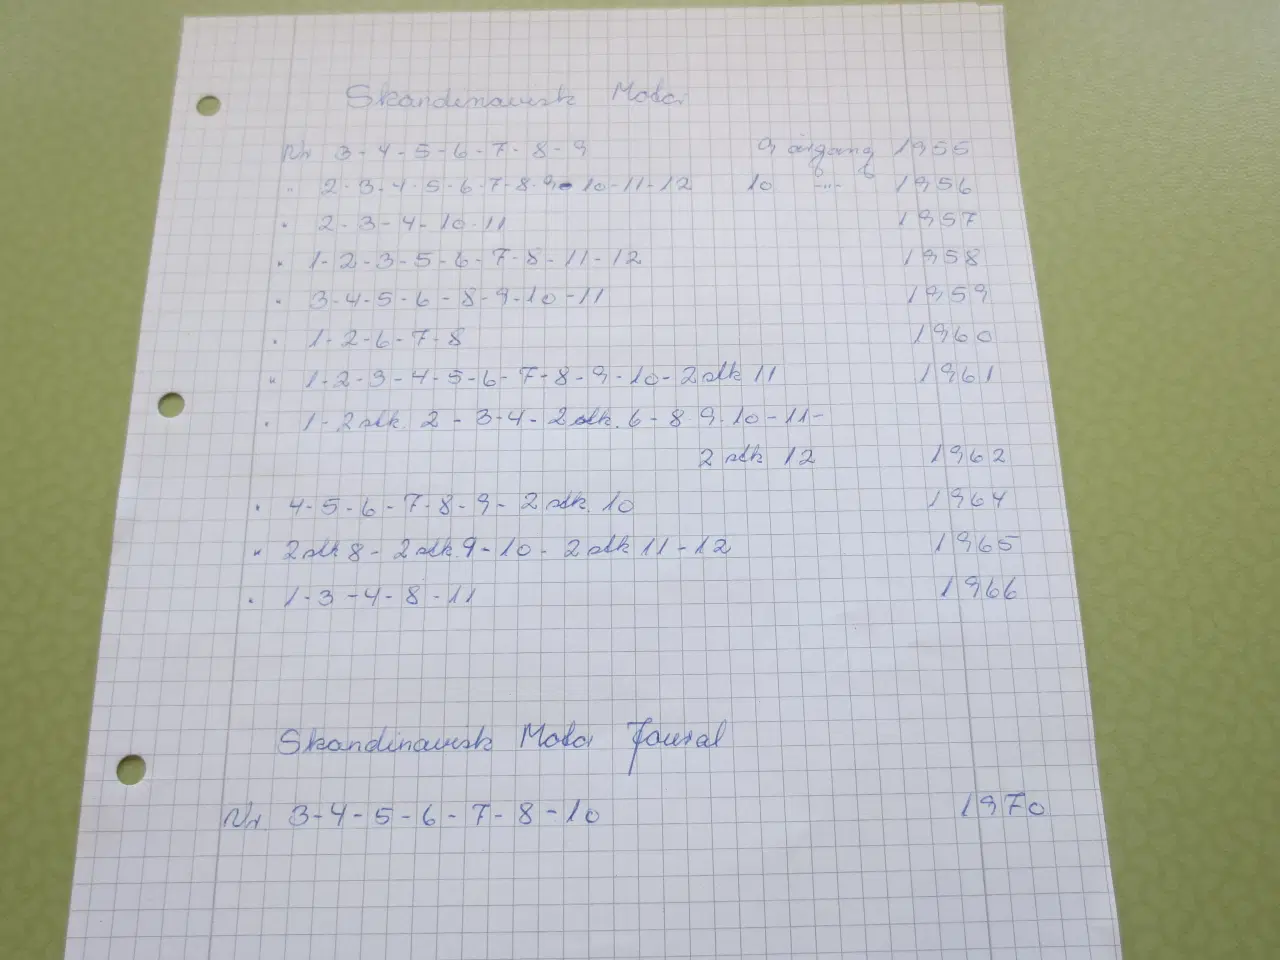 Skandinavisk Motor
Nr 3-4-5-6-7-8-9 9 årgang 1955
" 2-3-4-5-6-7-8-9-10-11-12 10 -"- 1956
" 2-3-4-10-11 1957
" 1-2-3-5-6-7-8-11-12 1958
" 3-4-5-6-8-9-10-11 1959
" 1-2-6-7-8 1960
" 1-2-3-4-5-6-7-8-9-10-2 stk 11 1961
" 1-2 stk. 2-3-4-2 stk. 6-8-9-10-11-
2 stk 12 1962
" 4-5-6-7-8-9-2 stk. 10 1964
" 2 stk 8-2 stk. 9-10-2 stk 11-12 1965
" 1-3-4-8-11 1966
Skandinavisk Motor Joural
Nr. 3-4-5-6-7-8-10 1970